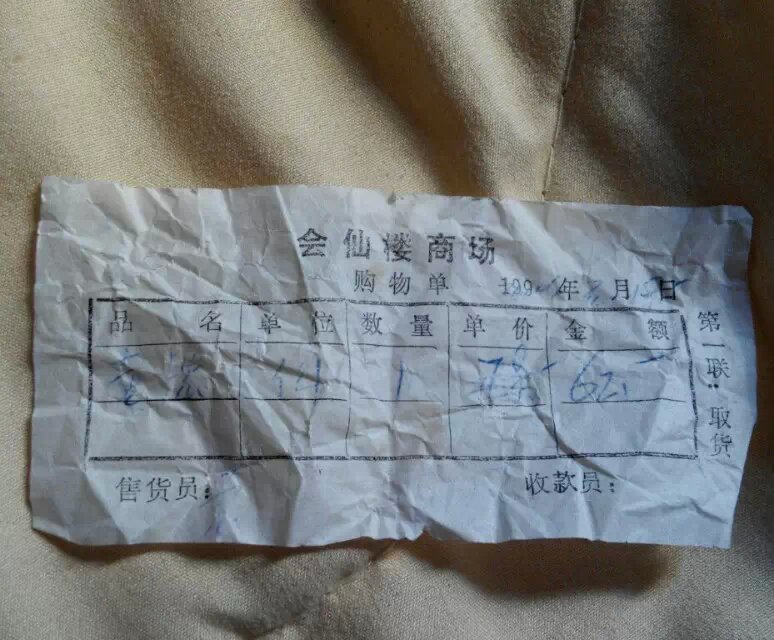 会仙楼商场
购物单 199 年 月 日
品名 单位 数量 单价 金额
件 1
售货员:
收款员:
第一联:取货